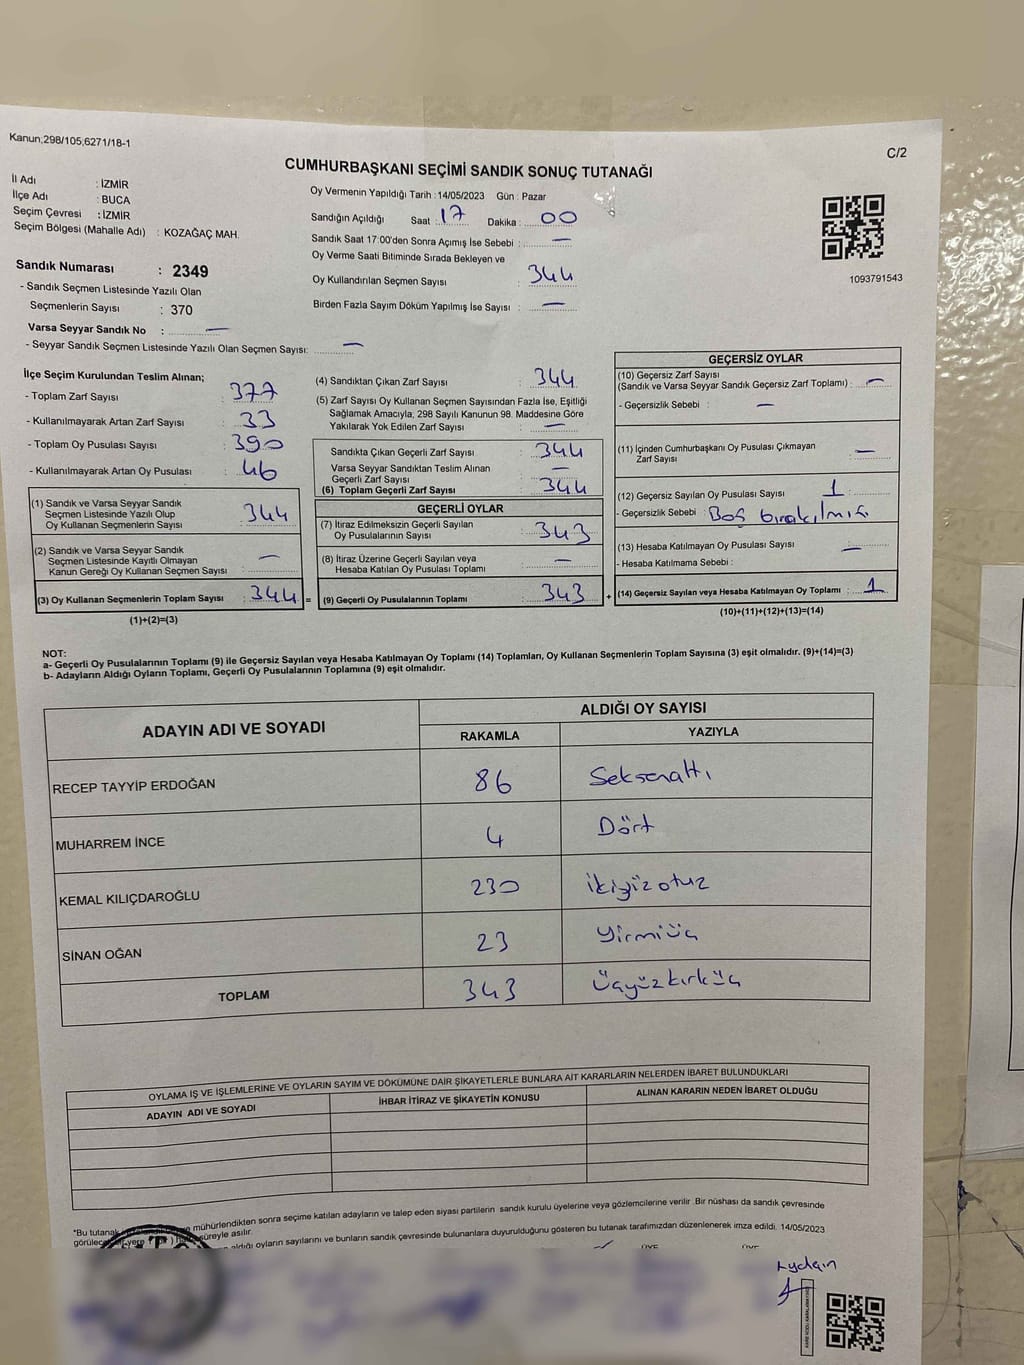 Kanun;298/105,6271/18-1
C/2
CUMHURBAŞKANI SEÇİMİ SANDIK SONUÇ TUTANAĞI
İl Adı : İZMİR
İlçe Adı : BUCA
Seçim Çevresi : İZMİR
Seçim Bölgesi (Mahalle Adı) : KOZAĞAÇ MAH.
Sandık Numarası : 2349
- Sandık Seçmen Listesinde Yazılı Olan
Seçmenlerin Sayısı : 370
Varsa Seyyar Sandık No : —
- Seyyar Sandık Seçmen Listesinde Yazılı Olan Seçmen Sayısı: —
Oy Vermenin Yapıldığı Tarih : 14/05/2023 Gün : Pazar
Sandığın Açıldığı Saat : 17 Dakika : 00
Sandık Saat 17:00'den Sonra Açımış İse Sebebi : —
Oy Verme Saati Bitiminde Sırada Bekleyen ve
Oy Kullandırılan Seçmen Sayısı : 344
Birden Fazla Sayım Döküm Yapılmış İse Sayısı : —
1093791543
İlçe Seçim Kurulundan Teslim Alınan;
- Toplam Zarf Sayısı : 377
- Kullanılmayarak Artan Zarf Sayısı : 33
- Toplam Oy Pusulası Sayısı : 390
- Kullanılmayarak Artan Oy Pusulası : 46
(1) Sandık ve Varsa Seyyar Sandık
Seçmen Listesinde Yazılı Olup
Oy Kullanan Seçmenlerin Sayısı : 344
(2) Sandık ve Varsa Seyyar Sandık
Seçmen Listesinde Kayıtlı Olmayan
Kanun Gereği Oy Kullanan Seçmen Sayısı : —
(3) Oy Kullanan Seçmenlerin Toplam Sayısı : 344 =
(1)+(2)=(3)
(4) Sandıktan Çıkan Zarf Sayısı : 344
(5) Zarf Sayısı Oy Kullanan Seçmen Sayısından Fazla İse, Eşitliği
Sağlamak Amacıyla, 298 Sayılı Kanunun 98. Maddesine Göre
Yakılarak Yok Edilen Zarf Sayısı : —
Sandıkta Çıkan Geçerli Zarf Sayısı : 344
Varsa Seyyar Sandıktan Teslim Alınan
Geçerli Zarf Sayısı : —
(6) Toplam Geçerli Zarf Sayısı : 344
GEÇERLİ OYLAR
(7) İtiraz Edilmeksizin Geçerli Sayılan
Oy Pusulalarının Sayısı : 343
(8) İtiraz Üzerine Geçerli Sayılan veya
Hesaba Katılan Oy Pusulası Toplamı : —
(9) Geçerli Oy Pusulalarının Toplamı : 343 +
GEÇERSİZ OYLAR
(10) Geçersiz Zarf Sayısı
(Sandık ve Varsa Seyyar Sandık Geçersiz Zarf Toplamı) : —
- Geçersizlik Sebebi : —
(11) İçinden Cumhurbaşkanı Oy Pusulası Çıkmayan
Zarf Sayısı : —
(12) Geçersiz Sayılan Oy Pusulası Sayısı : 1
- Geçersizlik Sebebi : Boş bırakılmış
(13) Hesaba Katılmayan Oy Pusulası Sayısı : —
- Hesaba Katılmama Sebebi :
(14) Geçersiz Sayılan veya Hesaba Katılmayan Oy Toplamı : 1
(10)+(11)+(12)+(13)=(14)
NOT:
a- Geçerli Oy Pusulalarının Toplamı (9) ile Geçersiz Sayılan veya Hesaba Katılmayan Oy Toplamı (14) Toplamları, Oy Kullanan Seçmenlerin Toplam Sayısına (3) eşit olmalıdır. (9)+(14)=(3)
b- Adayların Aldığı Oyların Toplamı, Geçerli Oy Pusulalarının Toplamına (9) eşit olmalıdır.
ADAYIN ADI VE SOYADI
ALDIĞI OY SAYISI
RAKAMLA YAZIYLA
RECEP TAYYİP ERDOĞAN 86 Seksenaltı
MUHARREM İNCE 4 Dört
KEMAL KILIÇDAROĞLU 230 ikiyüzotuz
SİNAN OĞAN 23 Yirmiüç
TOPLAM 343 Üçyüzkırküç
OYLAMA İŞ VE İŞLEMLERİNE VE OYLARIN SAYIM VE DÖKÜMÜNE DAİR ŞİKAYETLERLE BUNLARA AİT KARARLARIN NELERDEN İBARET BULUNDUKLARI
ADAYIN ADI VE SOYADI İHBAR İTİRAZ VE ŞİKAYETİN KONUSU ALINAN KARARIN NEDEN İBARET OLDUĞU
*Bu tutanak mühürlendikten sonra seçime katılan adayların ve talep eden siyasi partilerin sandık kurulu üyelerine veya gözlemcilerine verilir .Bir nüshası da sandık çevresinde
süreyle asılır.
aldığı oyların sayılarını ve bunların sandık çevresinde bulunanlara duyurulduğunu gösteren bu tutanak tarafımızdan düzenlenerek imza edildi. 14/05/2023